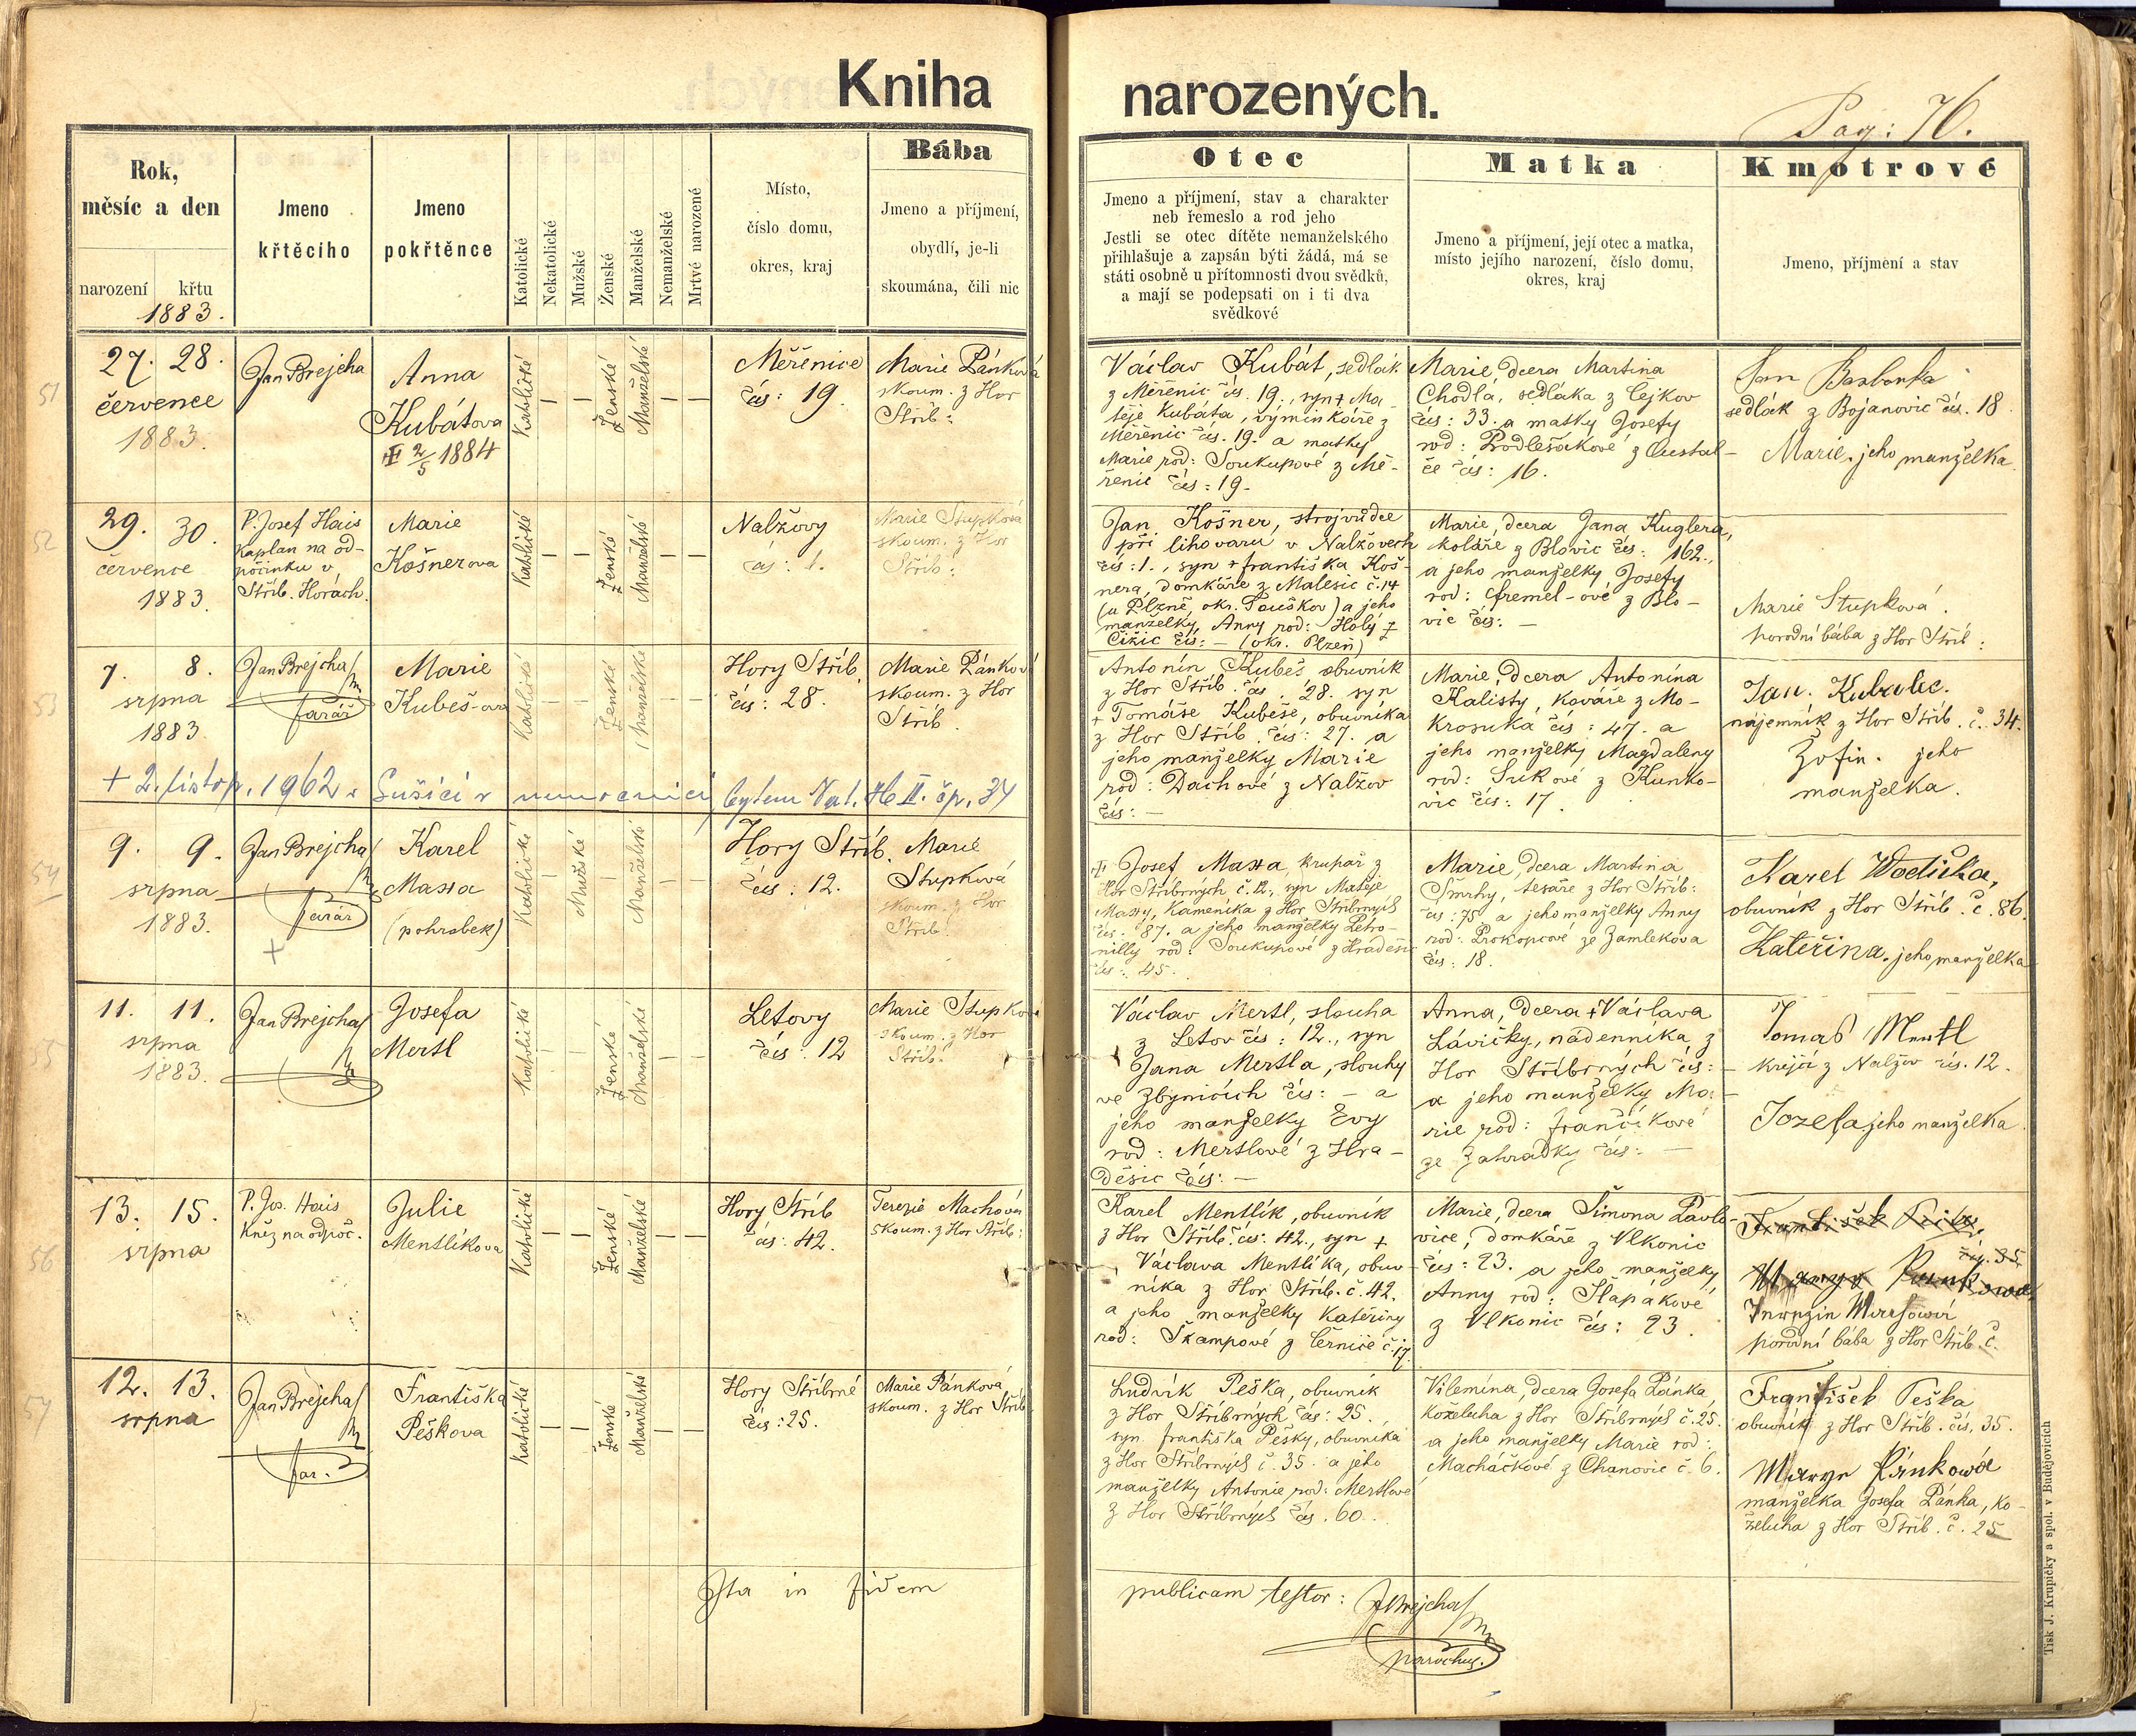 Kniha narozených.
Pag: 76.
Rok,
měsíc a den
narození
křtu
1883.
Jmeno
křtěcího
Jmeno
pokřtěnce
Katolické
Nekatolické
Mužské
Ženské
Manželské
Nemanželské
Mrtvé narozené
Místo,
číslo domu,
okres, kraj
Bába
Jmeno a příjmení,
obydlí, je-li
skoumána, čili nic
Otec
Jmeno a příjmení, stav a charakter
neb řemeslo a rod jeho
Jestli se otec dítěte nemanželského
přihlašuje a zapsán býti žádá, má se
státi osobně u přítomnosti dvou svědků,
a mají se podepsati on i ti dva
svědkové
Matka
Jmeno a příjmení, její otec a matka,
místo jejího narození, číslo domu,
okres, kraj
Kmotrové
Jmeno, příjmení a stav
51
27. 28.
července
1883.
Jan Brejcha
Anna
Kubátova
2/5 1884
Katolické
—
—
Ženské
Manželské
—
—
Měřenice
čís: 19.
Marie Pánková
skoum. z Hor
Stříb:
Václav Kubát, sedlák
z Měřenic čís. 19., syn + Ma-
těje Kubáta, výminkáře z
Měřenic čís. 19. a matky
Marie rod: Soukupové z Mě-
řenic čís: 19.
Marie, dcera Martina
Chodla, sedláka z Čejkov
čís: 33. a matky Josefy
rod: Podlešákové z
če čís: 16.
Jan
sedlák z Bojanovic čís. 18
Marie, jeho manželka
52
29. 30.
července
1883.
P. Josef Hais
kaplan na od-
počinku v
Stříb. Horách.
Marie
Košnerova
Katolické
—
—
Ženské
Manželské
—
—
Nalžovy
čís: 1.
Marie Stupková
skoum. z Hor
Stříb:
Jan Košner, strojvůdce
při lihovaru v Nalžovech
čís: 1., syn + Františka Koš-
nera, domkáře z Malesic č. 14
(u Plzně, okr. Touškov) a jeho
manželky Anny rod: Holý z
Čižic čís: — (okr. Plzeň)
Marie, dcera Jana Kuglera,
koláře z Blovic čís: 162.,
a jeho manželky Josefy
rod: z Blo-
vic čís: —
Marie Stupková
porodní bába z Hor Stříb:
53
7. 8.
srpna
1883.
Jan Brejcha
farář
Marie
Kubeš-ova
Katolické
—
—
Ženské
Manželské
—
—
Hory Stříb.
čís: 28.
Marie Pánková
skoum. z Hor
Stříb.
Antonín Kubeš obuvník
z Hor Stříb. čís. 28. syn
+ Tomáše Kubeše, obuvníka
z Hor Stříb. čís: 27. a
jeho manželky Marie
rod: Dachové z Nalžov
čís: —
Marie, dcera Antonína
Kalisty, kováře z Mo-
krosuka čís: 47. a
jeho manželky Magdaleny
rod: Sukové z Kunko-
vic čís: 17.
Jan Kubalec.
nájemník z Hor Stříb. č. 34.
Žofin. jeho
manželka.
+ 2. listop. 1962 v Sušici v nemocnici, bytem Nal. II. čp. 34
54
9. 9.
srpna
1883.
Jan Brejcha
farář
+
Karel
Massa
(pohrobek)
Katolické
—
Mužské
—
Manželské
—
—
Hory Stříb.
čís: 12.
Marie
Stupková
skoum. z Hor
Stříb.
Josef Massa, krupař z
Hor Stříbrných č. 12., syn Matěje
Massy, kameníka z Hor Stříbrných
čís. 87. a jeho manželky Petro-
nilly rod: Soukupové z Hradešic
čís: 45.
Marie, dcera Martina
Smrhy, tesaře z Hor Stříb:
čís: 75. a jeho manželky Anny
rod: Prokopcové ze Zamlekova
čís: 18.
Karel Wodička,
obuvník z Hor Stříb. č. 86.
Kateřina, jeho manželka
55
11. 11.
srpna
1883.
Jan Brejcha
Josefa
Mertl
Katolické
—
—
Ženské
Manželské
—
—
Letovy
čís: 12
Marie Stupková
skoum. z Hor
Stříb.
Václav Mertl, slouha
z Letov čís: 12., syn
Jana Mertla, slouhy
ve Zbynicích čís: — a
jeho manželky Evy
rod: Mertlové z Hra-
děsic čís: —
Anna, dcera + Václava
Lávičky, nádenníka z
Hor Stříbrných čís: —
a jeho manželky Ma-
rie rod: Frančíkové
ze Zahrádky čís: —
Tomaš Mertl
krejčí z Nalžov čís. 12.
Jozefa jeho manželka.
56
13. 15.
srpna
P. Jos. Hais
kněz na odpoč.
Julie
Mentlíkova
Katolické
—
—
Ženské
Manželské
—
—
Hory Stříb
čís: 42.
Terezie Machová
skoum. z Hor Stříb:
Karel Mentlík, obuvník
z Hor Stříb. čís: 42., syn +
Václava Mentlíka, obuv-
níka z Hor Stříb. č. 42.
a jeho manželky Kateřiny
rod: Škampové z Černice č. 17.
Marie, dcera Šimona Pavlo-
vice, domkáře z Vlkonic
čís: 23. a jeho manželky
Anny rod: Šlapákové
z Vlkonic čís: 23.
František
čís. 35
porodní bába z Hor Stříb. č.
57
12. 13.
srpna
Jan Brejcha
far.
Františka
Peškova
Katolické
—
—
Ženské
Manželské
—
—
Hory Stříbrné
čís: 25.
Marie Pánková
skoum. z Hor Stříb.
Ludvík Peška, obuvník
z Hor Stříbrných čís: 25.,
syn Františka Pešky, obuvníka
z Hor Stříbrných č. 35. a jeho
manželky Antonie rod: Mertlove
z Hor Stříbrných čís. 60.
Vilemína, dcera Josefa Pánka,
koželuha z Hor Stříbrných č. 25.
a jeho manželky Marie rod:
Macháčkové z Chanovic č. 6.
František Peška
obuvník z Hor Stříb. čís. 35.
Marye Pánkowá
manželka Josefa Pánka, ko-
želuha z Hor Stříb. č. 25
Ita in fidem publicam testor: JBrejcha
parochus.
Tisk J. Krupičky a spol. v Budějovicích